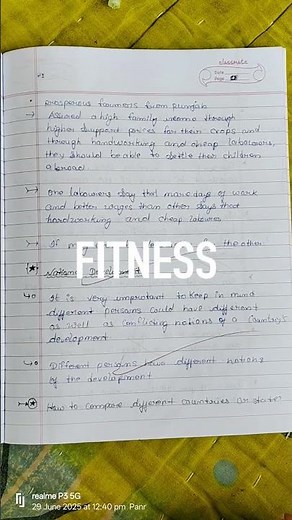 classmate
Date
Page
Prosperous farmers from Punjab
→ Assured a high family income through
higher support prices for their crops and
through hardworking and cheap labourers,
they should be able to settle their children
abroad.
→ One labourers day that more days of work
and better wages than other days that
hardworking and cheap labourer
FITNESS
→ If the other
National Development
→ It is very important to keep in mind
different persons could have different
as well as conflicting notions of a country's
development
→ Different persons have different notions
of the development
→ How to compare different countries or states
realme P3 5G
29 June 2025 at 12:40 pm Panr